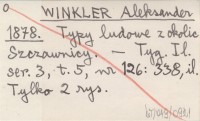 WINKLER Aleksander
1878. Typy ludowe z okolic
Szczawnicy. — Tyg. Il.
ser. 3, t. 5, nr 126: 338, il.
Tylko 2 rys.